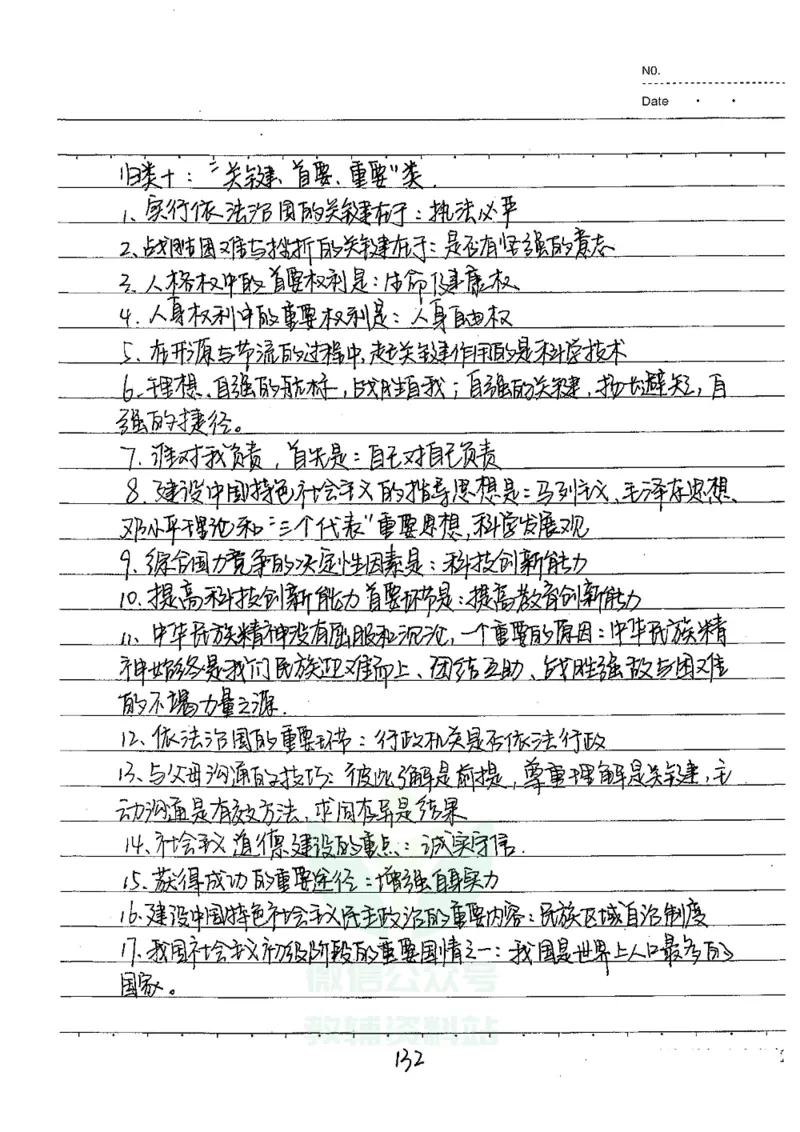 NO.
Date
归类十：“关键、首要、重要”类.
1、实行依法治国的关键在于：执法必严
2、战胜困难与挫折的关键在于：是否有坚强的意志
3、人格权中的首要权利是：生命健康权、
4、人身权利中的重要权利是：人身自由权
5、在开源与节流的过程中,起关键作用的是科学技术
6、理想、自强的航标，战胜自我；自强的关键，扬长避短，自
强的捷径。
7、谁对我负责，首先是：自己对自己负责
8、建设中国特色社会主义的指导思想是：马列主义、毛泽东思想、
邓小平理论和“三个代表”重要思想,科学发展观
9、综合国力竞争的决定性因素是：科技创新能力
10、提高科技创新能力首要环节是：提高教育创新能力
11、中华民族精神没有屈服和沉沦，一个重要的原因：中华民族精
神始终是我们民族迎难而上、团结互助、战胜强敌与困难
的不竭力量之源.
12、依法治国的重要环节：行政机关是否依法行政
13、与父母沟通的技巧：彼此了解是前提，尊重理解是关键，主
动沟通是有效方法，求同存异是结果
14、社会主义道德建设的重点：诚实守信.
15、获得成功的重要途径：增强自身实力
16、建设中国特色社会主义民主政治的重要内容：民族区域自治制度
17、我国社会主义初级阶段的重要国情之一：我国是世界上人口最多的
国家。
微信公众号
教辅资料站
132